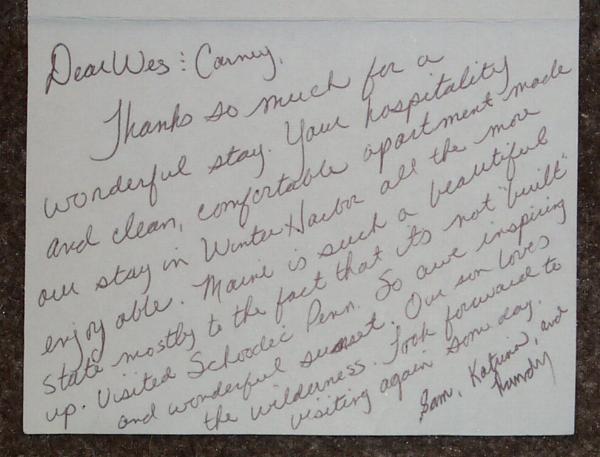 Dear Wes & Carney,
Thanks so much for a
wonderful stay. Your hospitality
and clean, comfortable apartment made
our stay in Winter Harbor all the more
enjoyable. Maine is such a beautiful
state mostly to the fact that it's not "built"
up. Visited Schoodic Penn. So awe inspiring
and wonderful sunset. Our son loves
the wilderness. Look forward to
visiting again some day.
Sam, Katrina, and